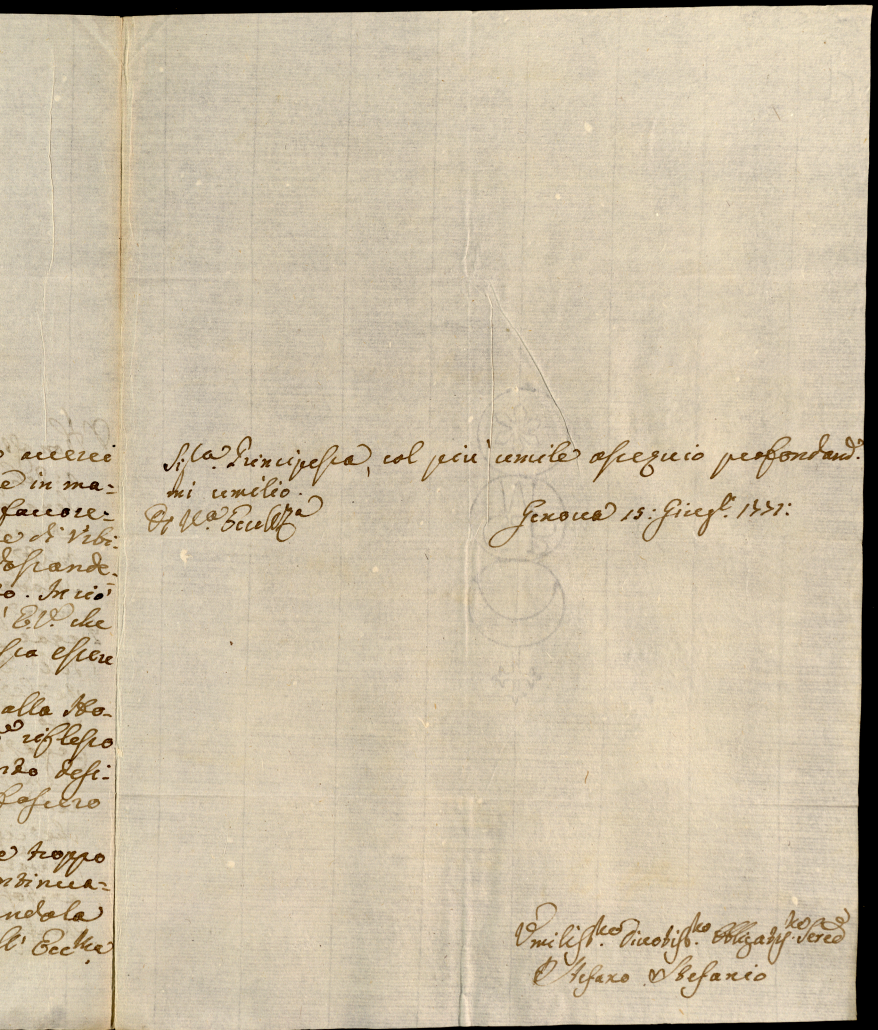 accerci
e in ma:
faccore:
e di Vibi:
dossande:
to. In ciò
E.V. che
sia essere
alla No:
riflesso
nto desi:
fossero
e troppo
ntinua:
ndola
ll' Ecc.ma
Sig.ra Principessa, col più umile ossequio profondam.e
mi umilio.
Di V.ra Eccell.za
Genova 15: Giug.o 1771:
Umiliss.mo Divotiss.mo Obbligatiss.mo Ser.re
Stefano Stefanio